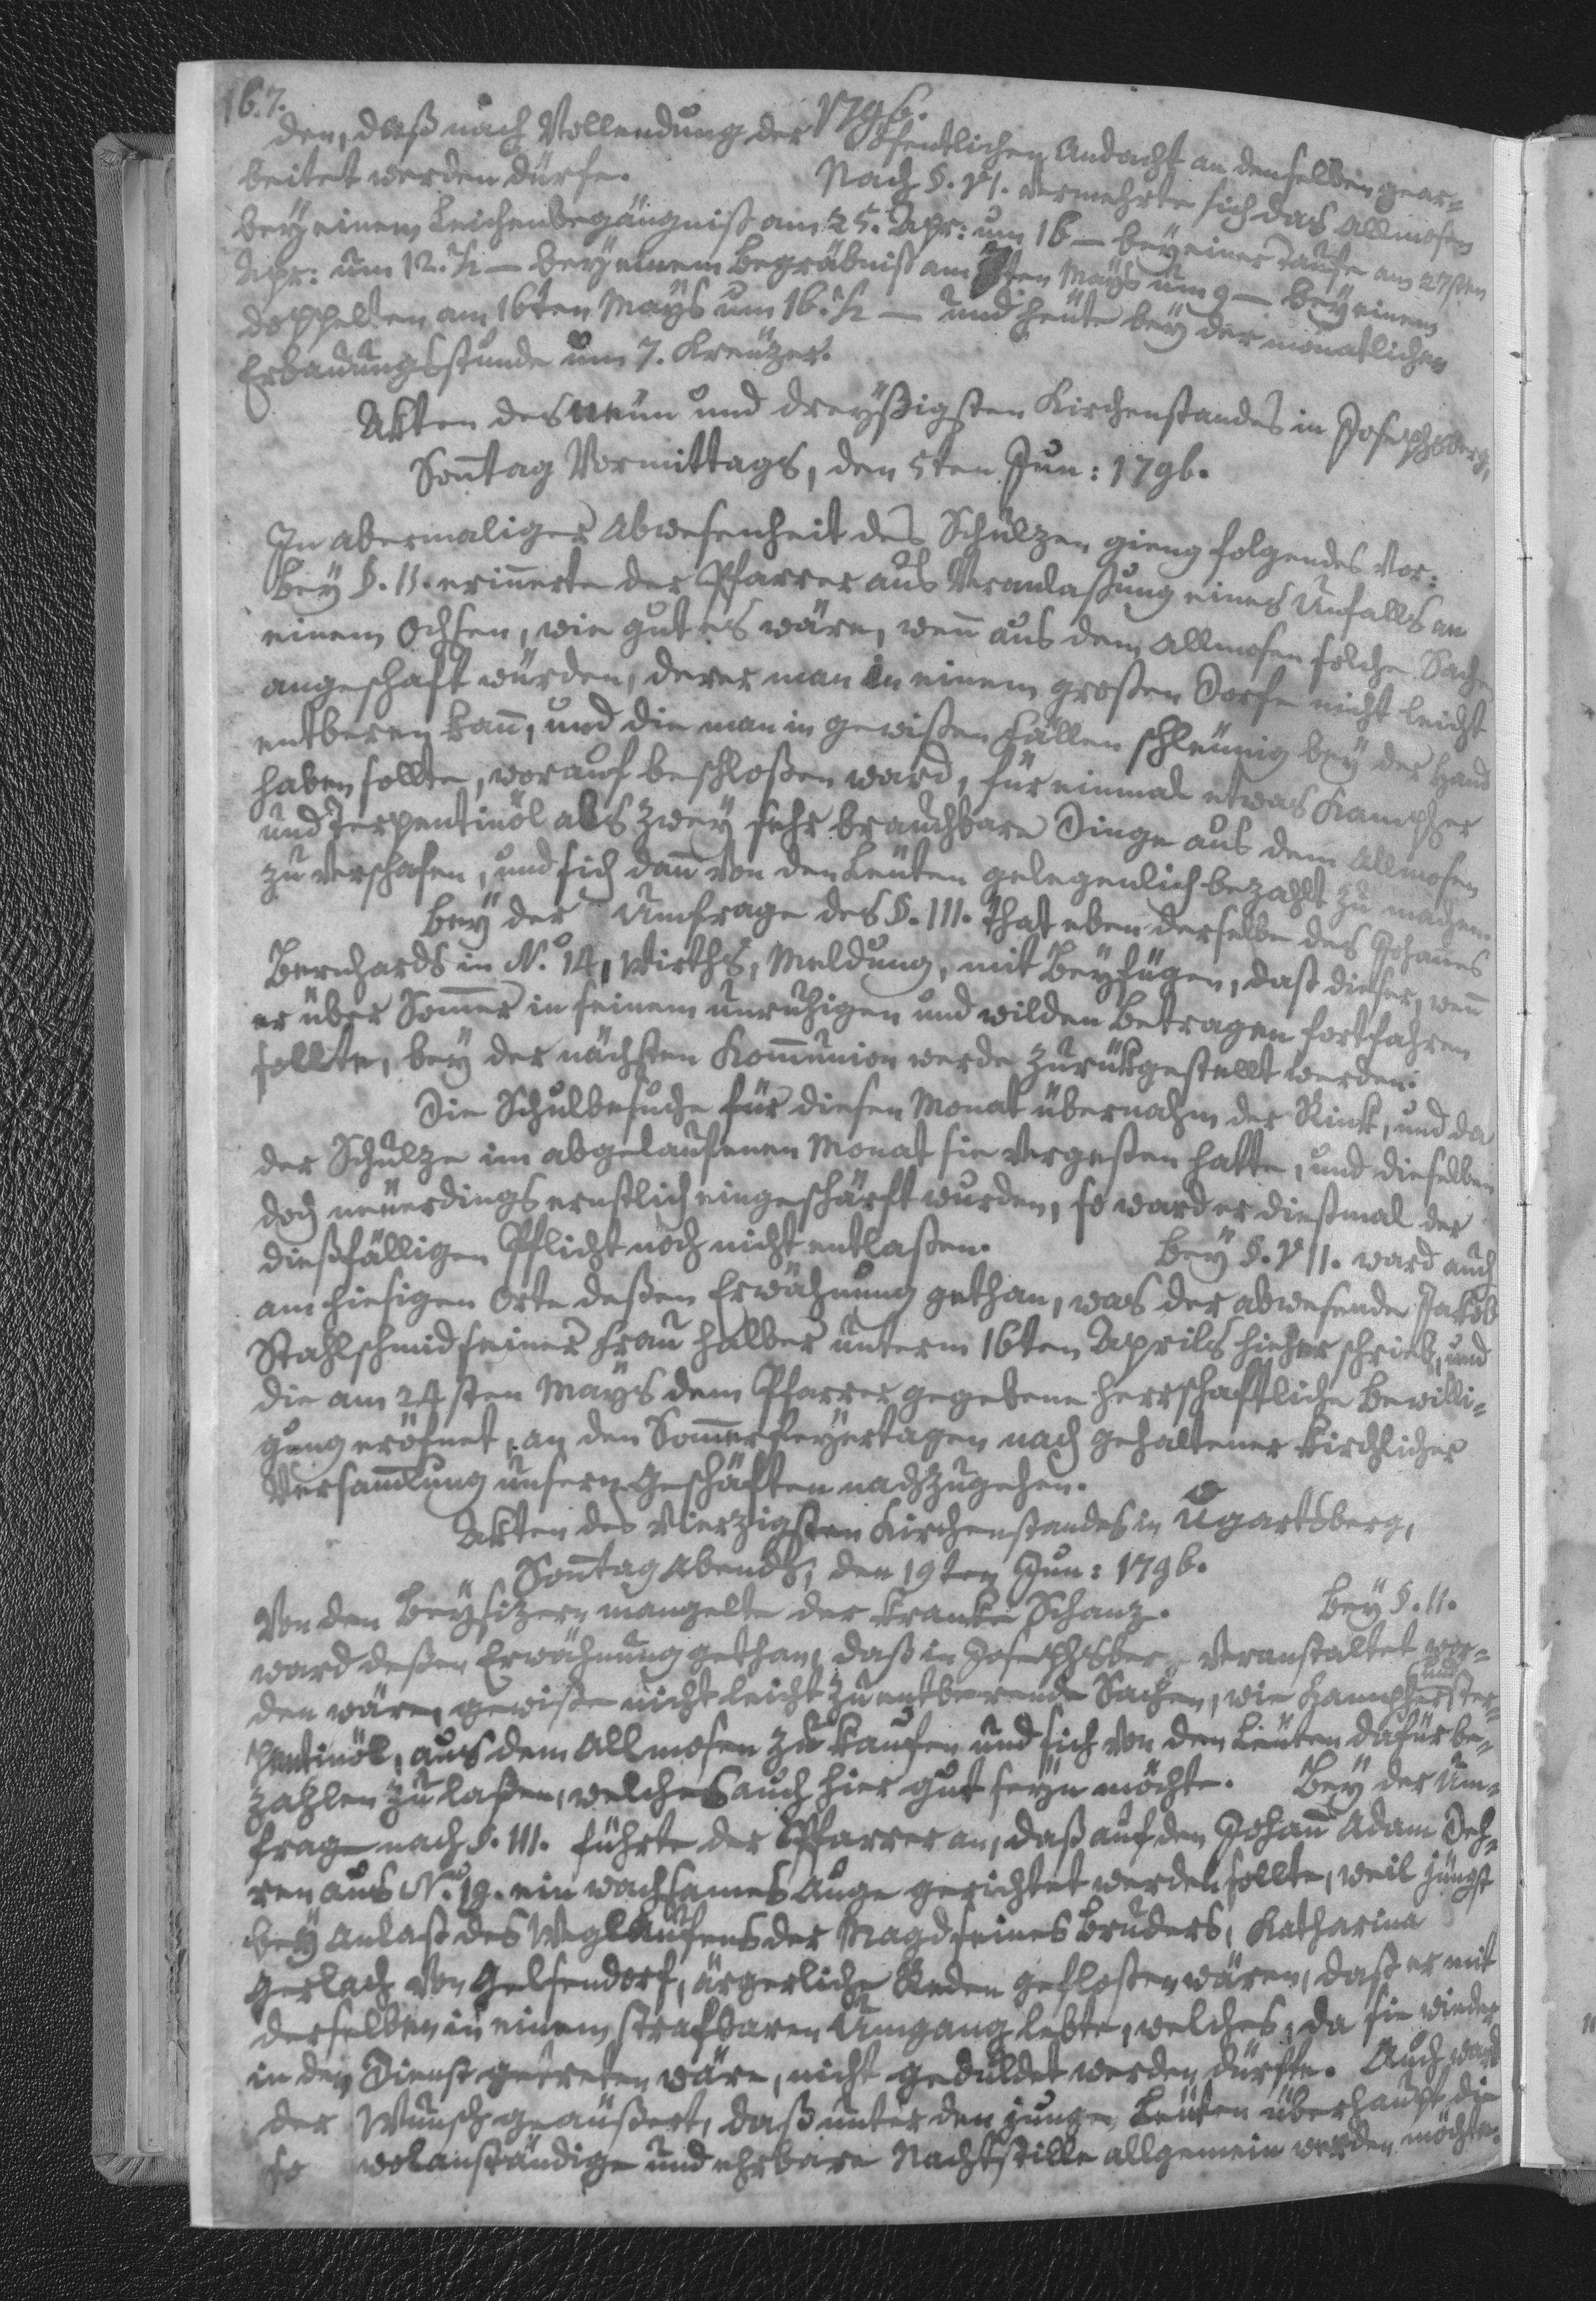 167.
1796.
den, daß nach Vollendung der öffentlichen Andacht an denselben gear-
beitet werden dürfe. Nach §. VI. vermehrte sich das Allmosen
bey einem Leichenbegängniß am 25. Apr: um 16 – bey einer Taufe am 27sten
Apr: um 12. ½ – bey einem Begräbniß am ten Mays um 9 – bey einem
doppelten am 16ten Mays um 16. ½ – und heute bey der monatlichen
Erbauungsstunde um 7. Kreuzer.
Akten des neun und dreyßigsten Kirchenstandes in Josephsberg,
Soñtag Vormittags, den 5ten Jun: 1796.
In abermaliger Abwesenheit des Schulzen gieng folgendes vor:
Bey §. II. erinnerte der Pfarrer aus Veranlaßung eines Unfalls an
einem Ochsen, wie gut es wäre, weñ aus dem Allmosen solche Sachen
angeschaft würden, derer man in einem großen Dorfe nicht leicht
entberen kañ, und die man in gewißen Fällen schleunig bey der Hand
haben sollte, worauf beschloßen ward, für einmal etwas Kampher
und Terpentinöl als zwey sehr brauchbare Dinge aus dem Allmosen
zu verschafen, und sich dañ von den Leuten gelegenlich bezahlt zu machen.
Bey der Umfrage des §. III. that eben derselbe des Johañes
Bernhards in No. 14, Wirths, Meldung, mit Beyfügen, daß dieser, weñ
er über Som̃er in seinem unruhigen und wilden Betragen fortfahren
sollte, bey der nächsten Kom̃union werde zurükgestellt werden.
Die Schulbesuche für diesen Monat übernahm der Rink, und da
der Schulze im abgelaufenen Monat sie vergeßen hatte, und dieselben
doch neuerdings ernstlich eingeschärft wurden, so ward er dießmal der
dießfälligen Pflicht noch nicht entlaßen. Bey §. VII. ward auch
am hiesigen Orte deßen Erwähnung gethan, was der abwesende Jakob
Stahlschmid seiner Frau halber unterm 16ten Aprils hieher schrieb, und
die am 24sten Mays dem Pfarrer gegebene herrschaftliche Bewilli-
gung eröfnet, an den Som̃erfeyertagen nach gehaltener kirchlicher
Versam̃lung unsern Geschäften nachzugehen.
Akten des vierzigsten Kirchenstandes in Ugartsberg,
Soñtag Abends, den 19ten Jun: 1796.
Von den Beysizern mangelte der kranke Schanz. Bey §. II.
ward deßen Erwähnung gethan, daß in Josephsberg veranstaltet wor-
den wäre, gewiße nicht leicht zu entberende Sachen, wie Kampher und Ter-
pentinöl, aus dem Allmosen zu kaufen und sich von den Leuten dafür be-
zahlen zu laßen, welches auch hier gut seyn möchte. Bey der Um-
frage nach §. III. führte der Pfarrer an, daß auf den Johañ Adam Deh-
ren aus No. 19. ein wachsames Auge gerichtet werden sollte, weil jüngst
bey Anlaß des Weglaufens der Magd seines Bruders, Katharina
Gerlach von Gelsendorf, ärgerliche Reden gefloßen wären, daß er mit
derselben in einem strafbaren Umgang lebte, welches, da sie wieder
in den Dienst getreten wäre, nicht geduldet werden dürfte. Auch ward
der Wunsch geäußert, daß unter den jungen Leuten überhaupt die
so wolanständige und ehrbare Nachtstille allgemein werden möchte.